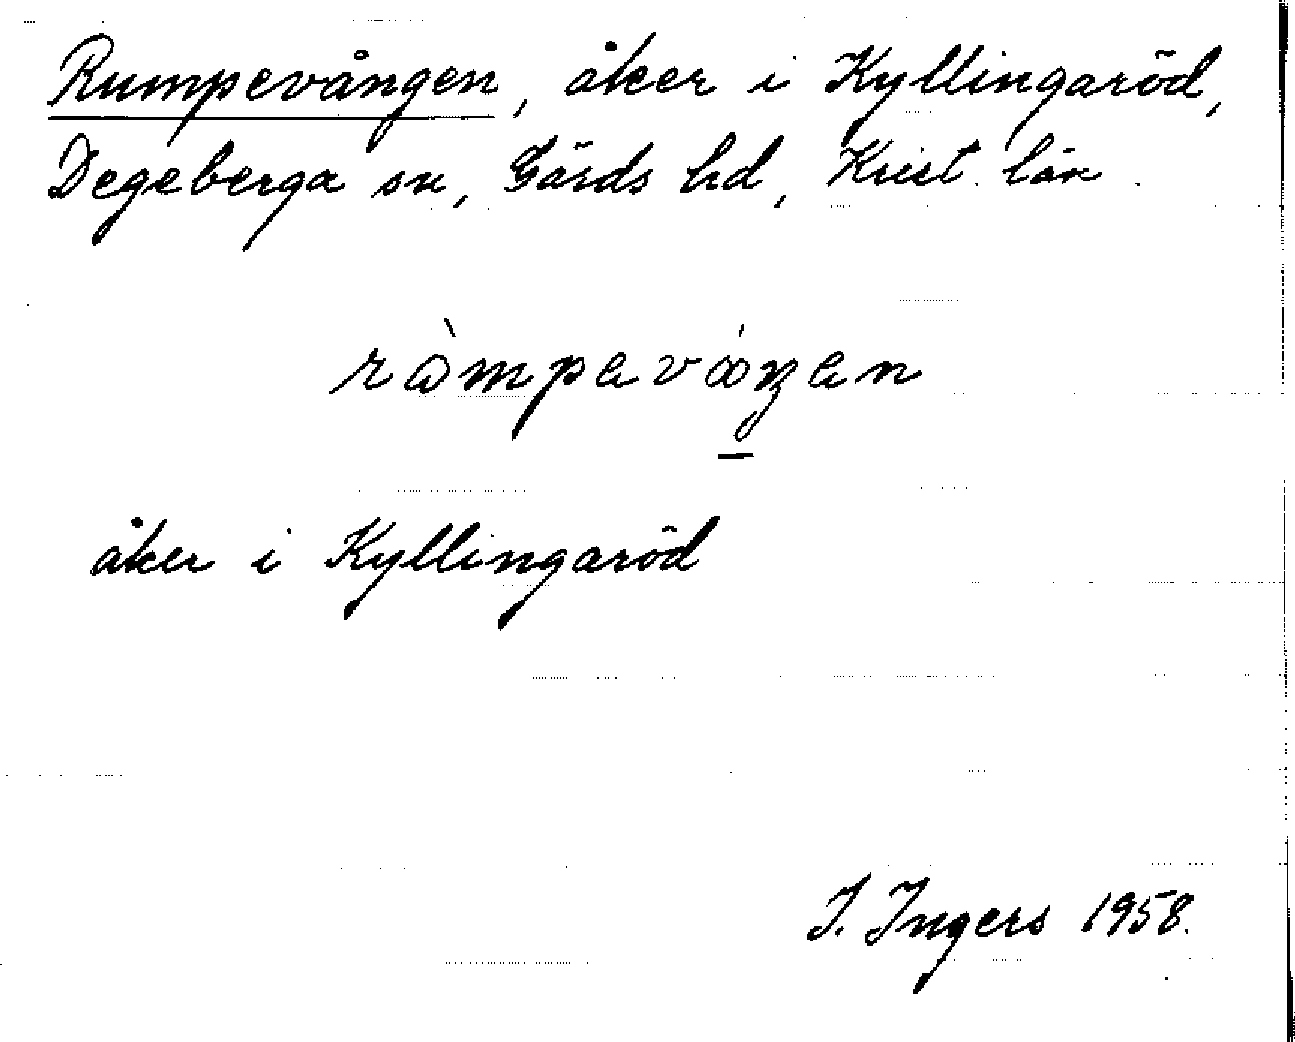 Rumpevången, åker i Kyllingaröd,
Degeberga sn, Gärds hd, Krist. län.
ròmpeváŋen
åker i Kyllingaröd
I. Ingers 1958.